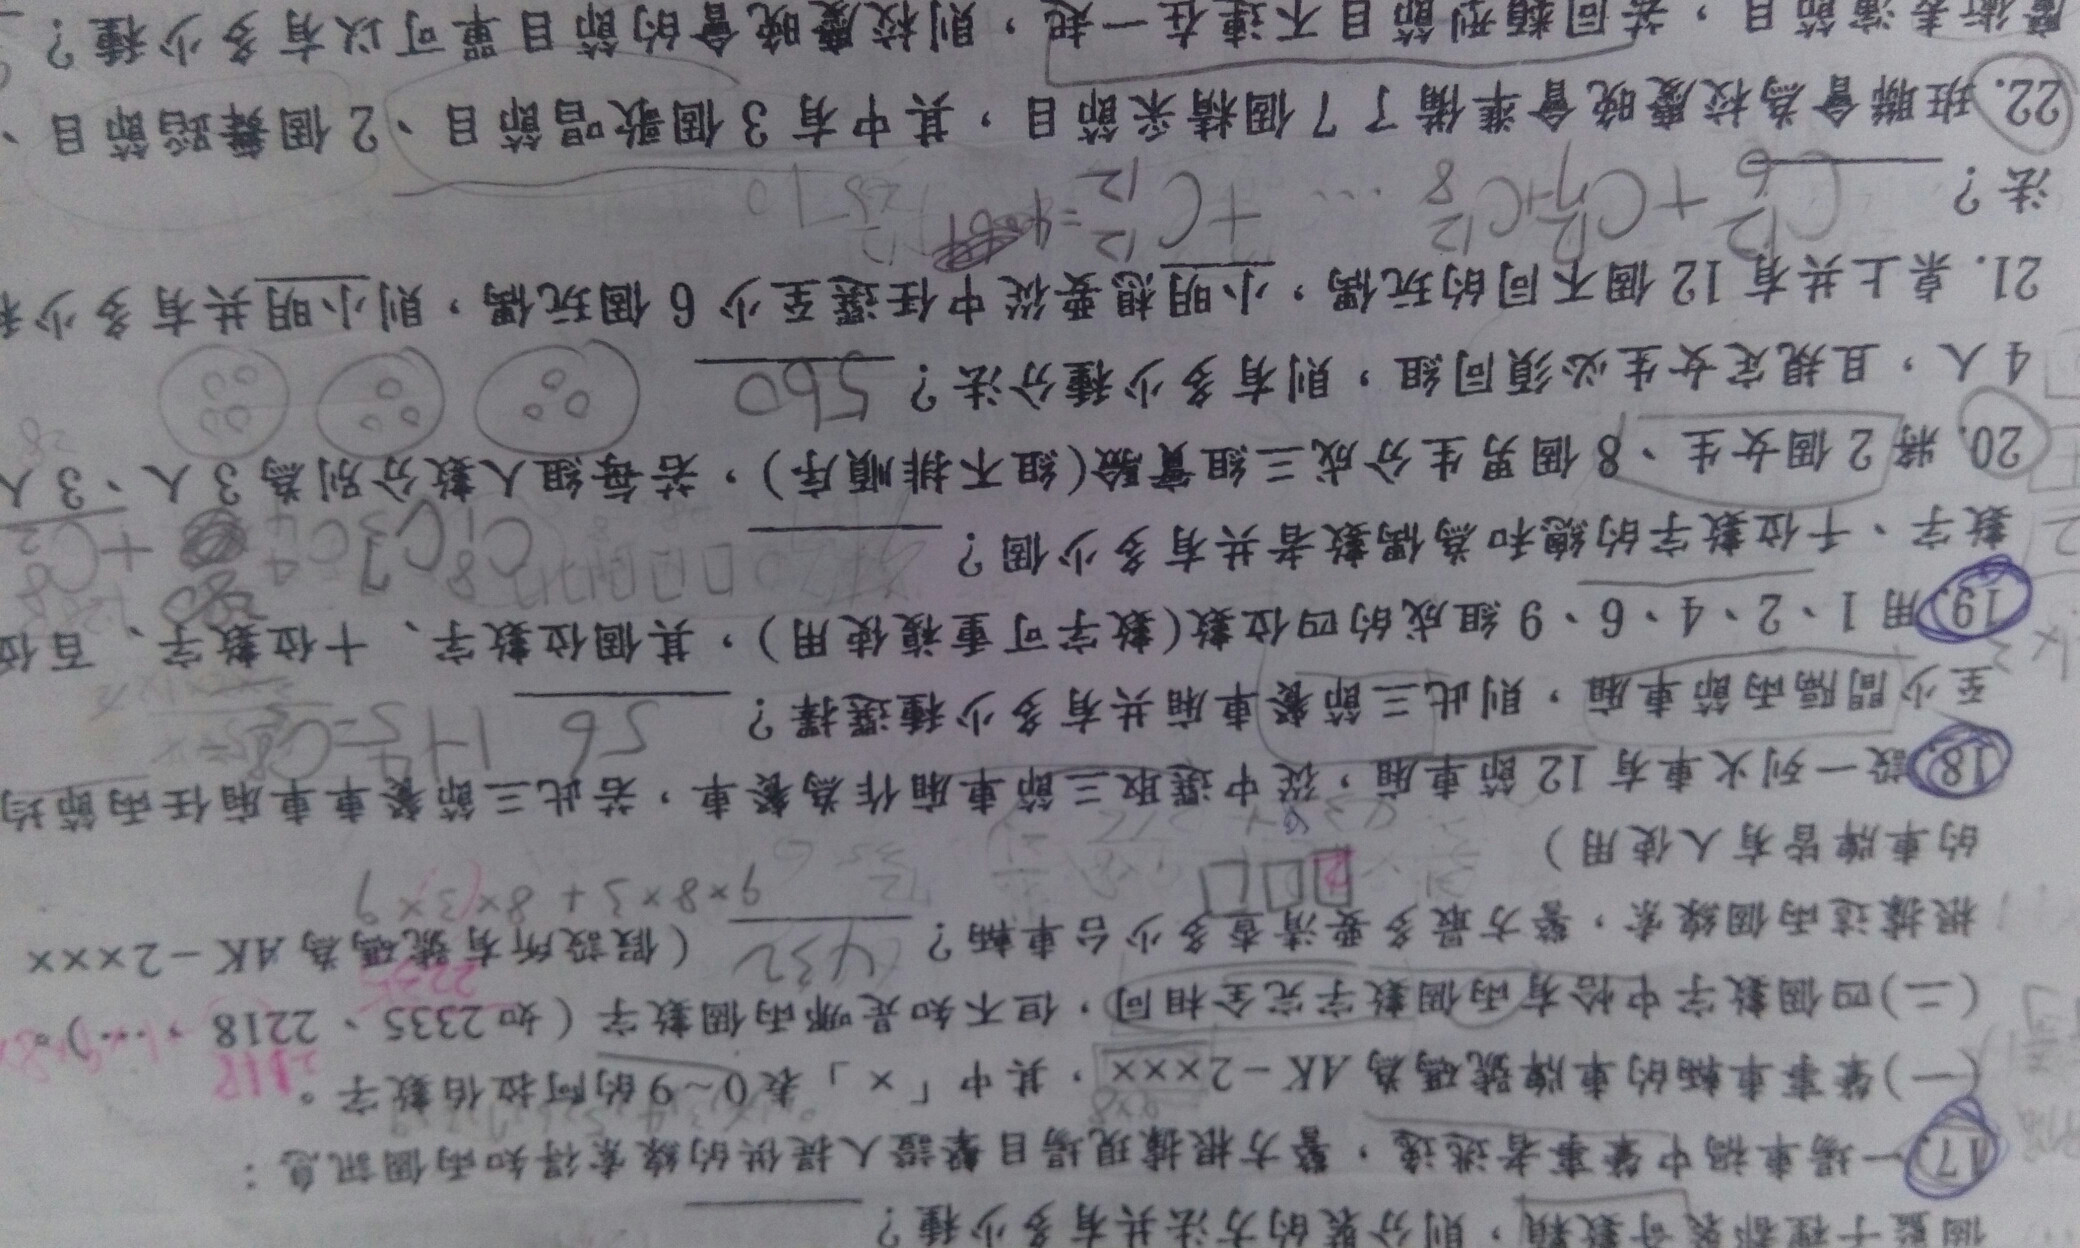 個籃子裡都裝奇數顆，則分裝的方法共有多少種？
17. 一場車禍中肇事者逃逸，警方根據現場目擊證人提供的線索得知兩個訊息：
(一)肇事車輛的車牌號碼為 AK－2×××，其中「×」表 0～9 的阿拉伯數字。
(二)四個數字中恰有兩個數字完全相同，但不知是哪兩個數字（如 2335、2218、…）。
根據這兩個線索，警方最多要清查多少台車輛？ 432 （假設所有號碼為 AK－2×××
的車牌皆有人使用）
9×8×3+8×3×9
18. 設一列火車有 12 節車廂，從中選取三節車廂作為餐車，若此三節餐車車廂任兩節均
至少間隔兩節車廂，則此三節餐車廂共有多少種選擇？ 56
19. 用 1、2、4、6、9 組成的四位數（數字可重複使用），其個位數字、十位數字、百位
數字、千位數字的總和為偶數者共有多少個？
20. 將 2 個女生、8 個男生分成三組實驗(組不排順序)，若每組人數分別為 3 人、3 人
4 人，且規定女生必須同組，則有多少種分法？ 560
21. 桌上共有 12 個不同的玩偶，小明想要從中任選至少 6 個玩偶，則小明共有多少種
法？
22. 班聯會為校慶晚會準備了 7 個精采節目，其中有 3 個歌唱節目、2 個舞蹈節目、
魔術表演節目，若同類型節目不連在一起，則校慶晚會的節目單可以有多少種？